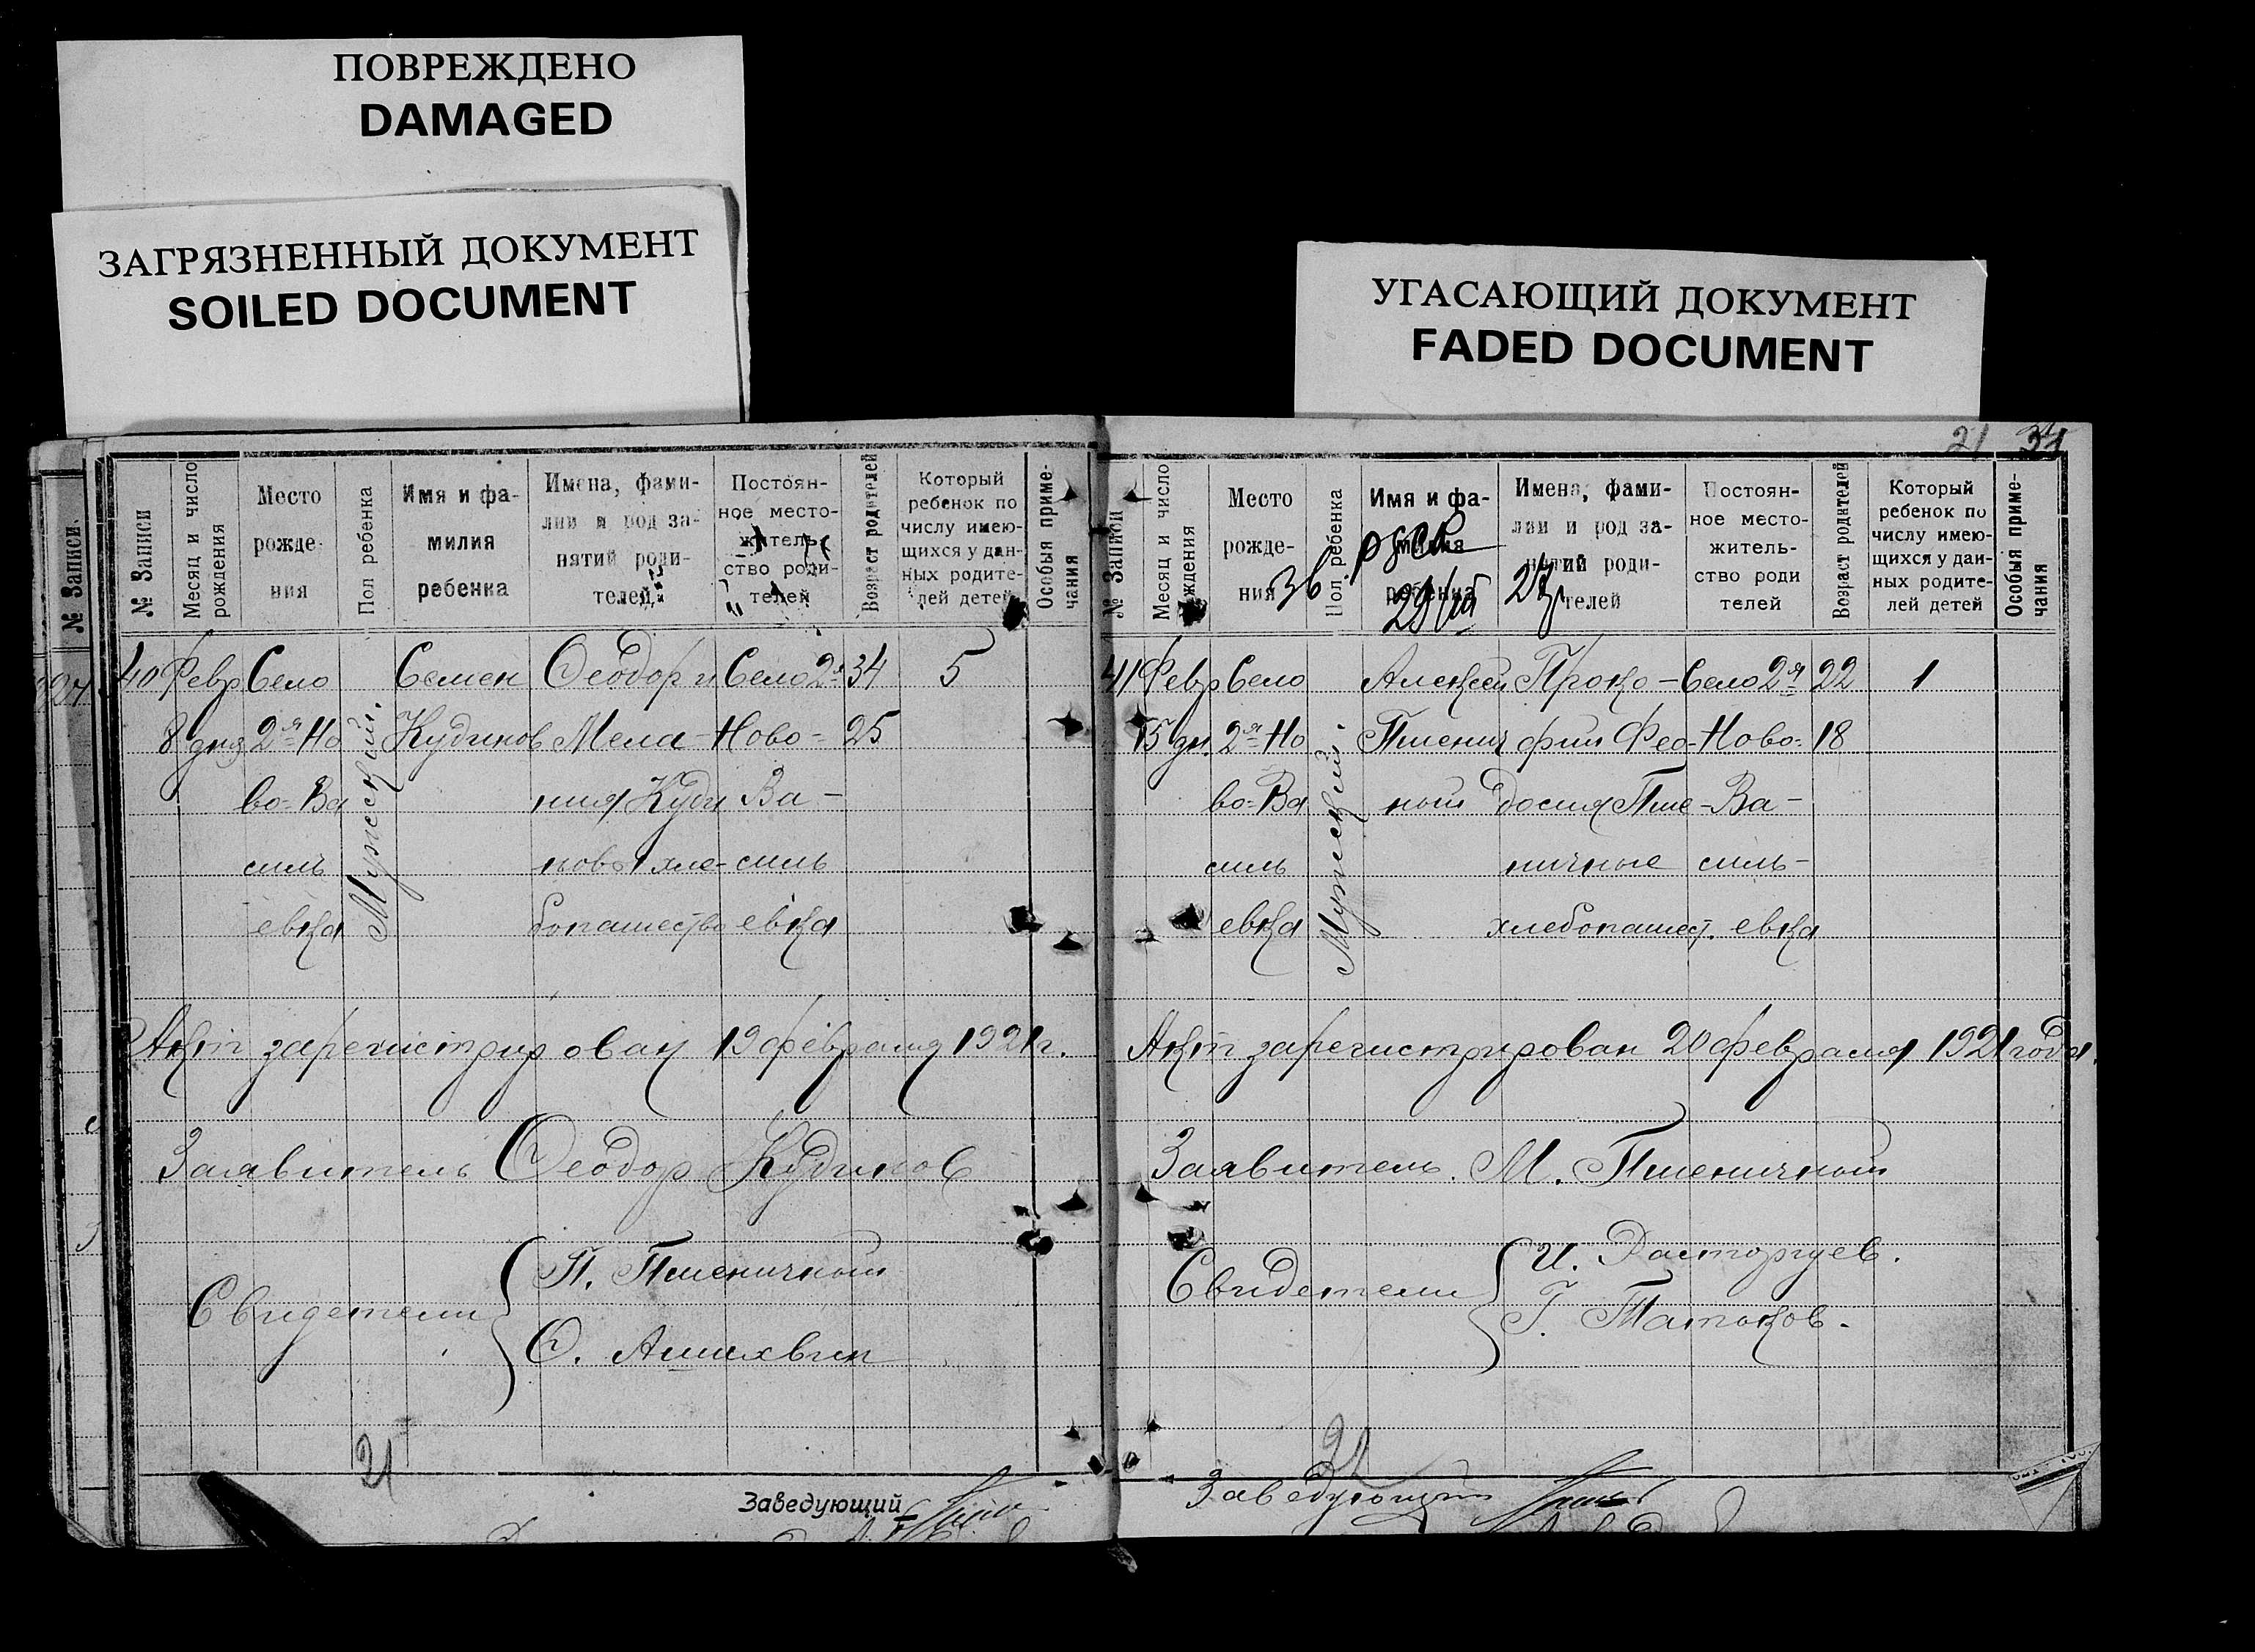 ПОВРЕЖДЕНО
DAMAGED
ЗАГРЯЗНЕННЫЙ ДОКУМЕНТ
SOILED DOCUMENT
УГАСАЮЩИЙ ДОКУМЕНТ
FADED DOCUMENT
№ Записи
№ Записи
Месяц и число рождения
Место
рожде-
ния
Пол ребенка
Имя и фа-
милия
ребенка
Имена, фами-
лии и род за-
нятий роди-
телей
Постоян-
ное место-
житель-
ство роди-
телей
Возраст родителей
Который
ребенок по
числу имею-
щихся у дан-
ных родите-
лей детей
Особыя приме-
чания
40 Февр Село Семен Феодор и Село 2я 34 5
8 дня 2я Но Кудинов Мела- Ново- 25
во-Ва ния Куди Ва-
силь новы хле- силь
евка бопашество евка
Мужский.
Акт зарегистрирован 19 февраля 1921 г.
Заявитель Феодор Кудинов
Свидетели
П. Пшеничный
Ф. Ашихвин
21
Заведующий
21 31
№ Записи
Месяц и число рождения
Место
рожде-
ния
Пол ребенка
Имя и фа-
милия
ребенка
Имена, фами-
лии и род за-
нятий роди-
телей
Постоян-
ное место-
житель-
ство роди
телей
Возраст родителей
Который
ребенок по
числу имею-
щихся у дан-
ных родите-
лей детей
Особыя приме-
чания
41 Февр Село Алексей Проко- Село 2я 22 1
15 дн. 2я Но Пшенич фий Фео- Ново- 18
во-Ва ный досия Пше- Ва-
силь ничные силь-
евка хлебопашест. евка
Мужский.
Акт зарегистрирован 20 февраля 1921 года.
Заявитель. М. Пшеничный
Свидетели
И. Расторгуев.
Г. Татьков.
Заведующий